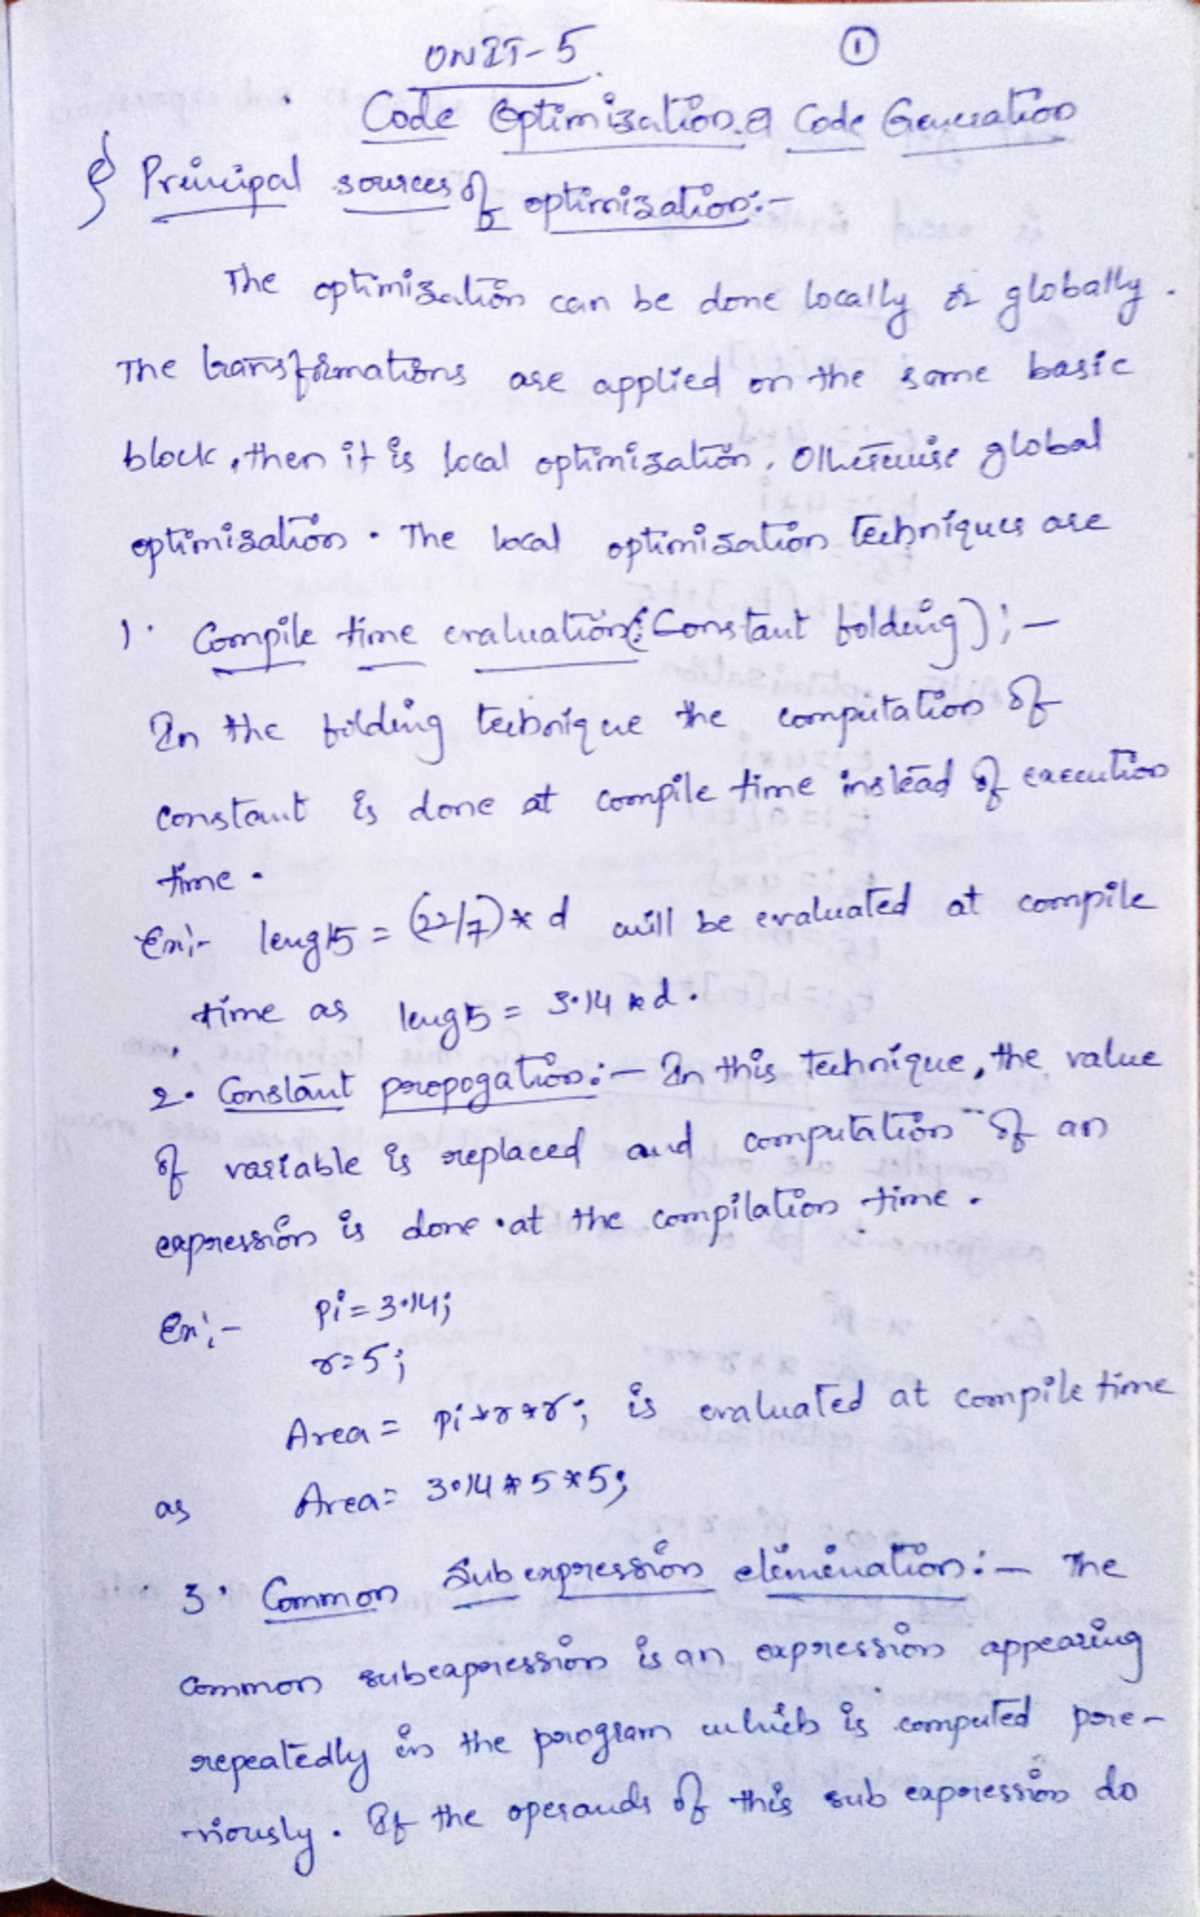 UNIT-5 ①
Code Optimization & Code Generation
§ Principal sources of optimization:-
The optimization can be done locally or globally.
The transformations are applied on the same basic
block, then it is local optimization. Otherwise global
optimization. The local optimization techniques are
1. Compile time evaluation (Constant folding):-
In the folding technique the computation of
constant is done at compile time instead of execution
time.
Ex:- length = (22/7)*d will be evaluated at compile
time as length = 3.14*d.
2. Constant propogation:- In this technique, the value
of variable is replaced and computation of an
expression is done at the compilation time.
Ex:- pi=3.14;
r=5;
Area= pi*r*r; is evaluated at compile time
as Area= 3.14*5*5;
3. Common Sub expression elimination:- The
common subexpression is an expression appearing
repeatedly in the program which is computed pre-
viously. If the operands of this sub expression do